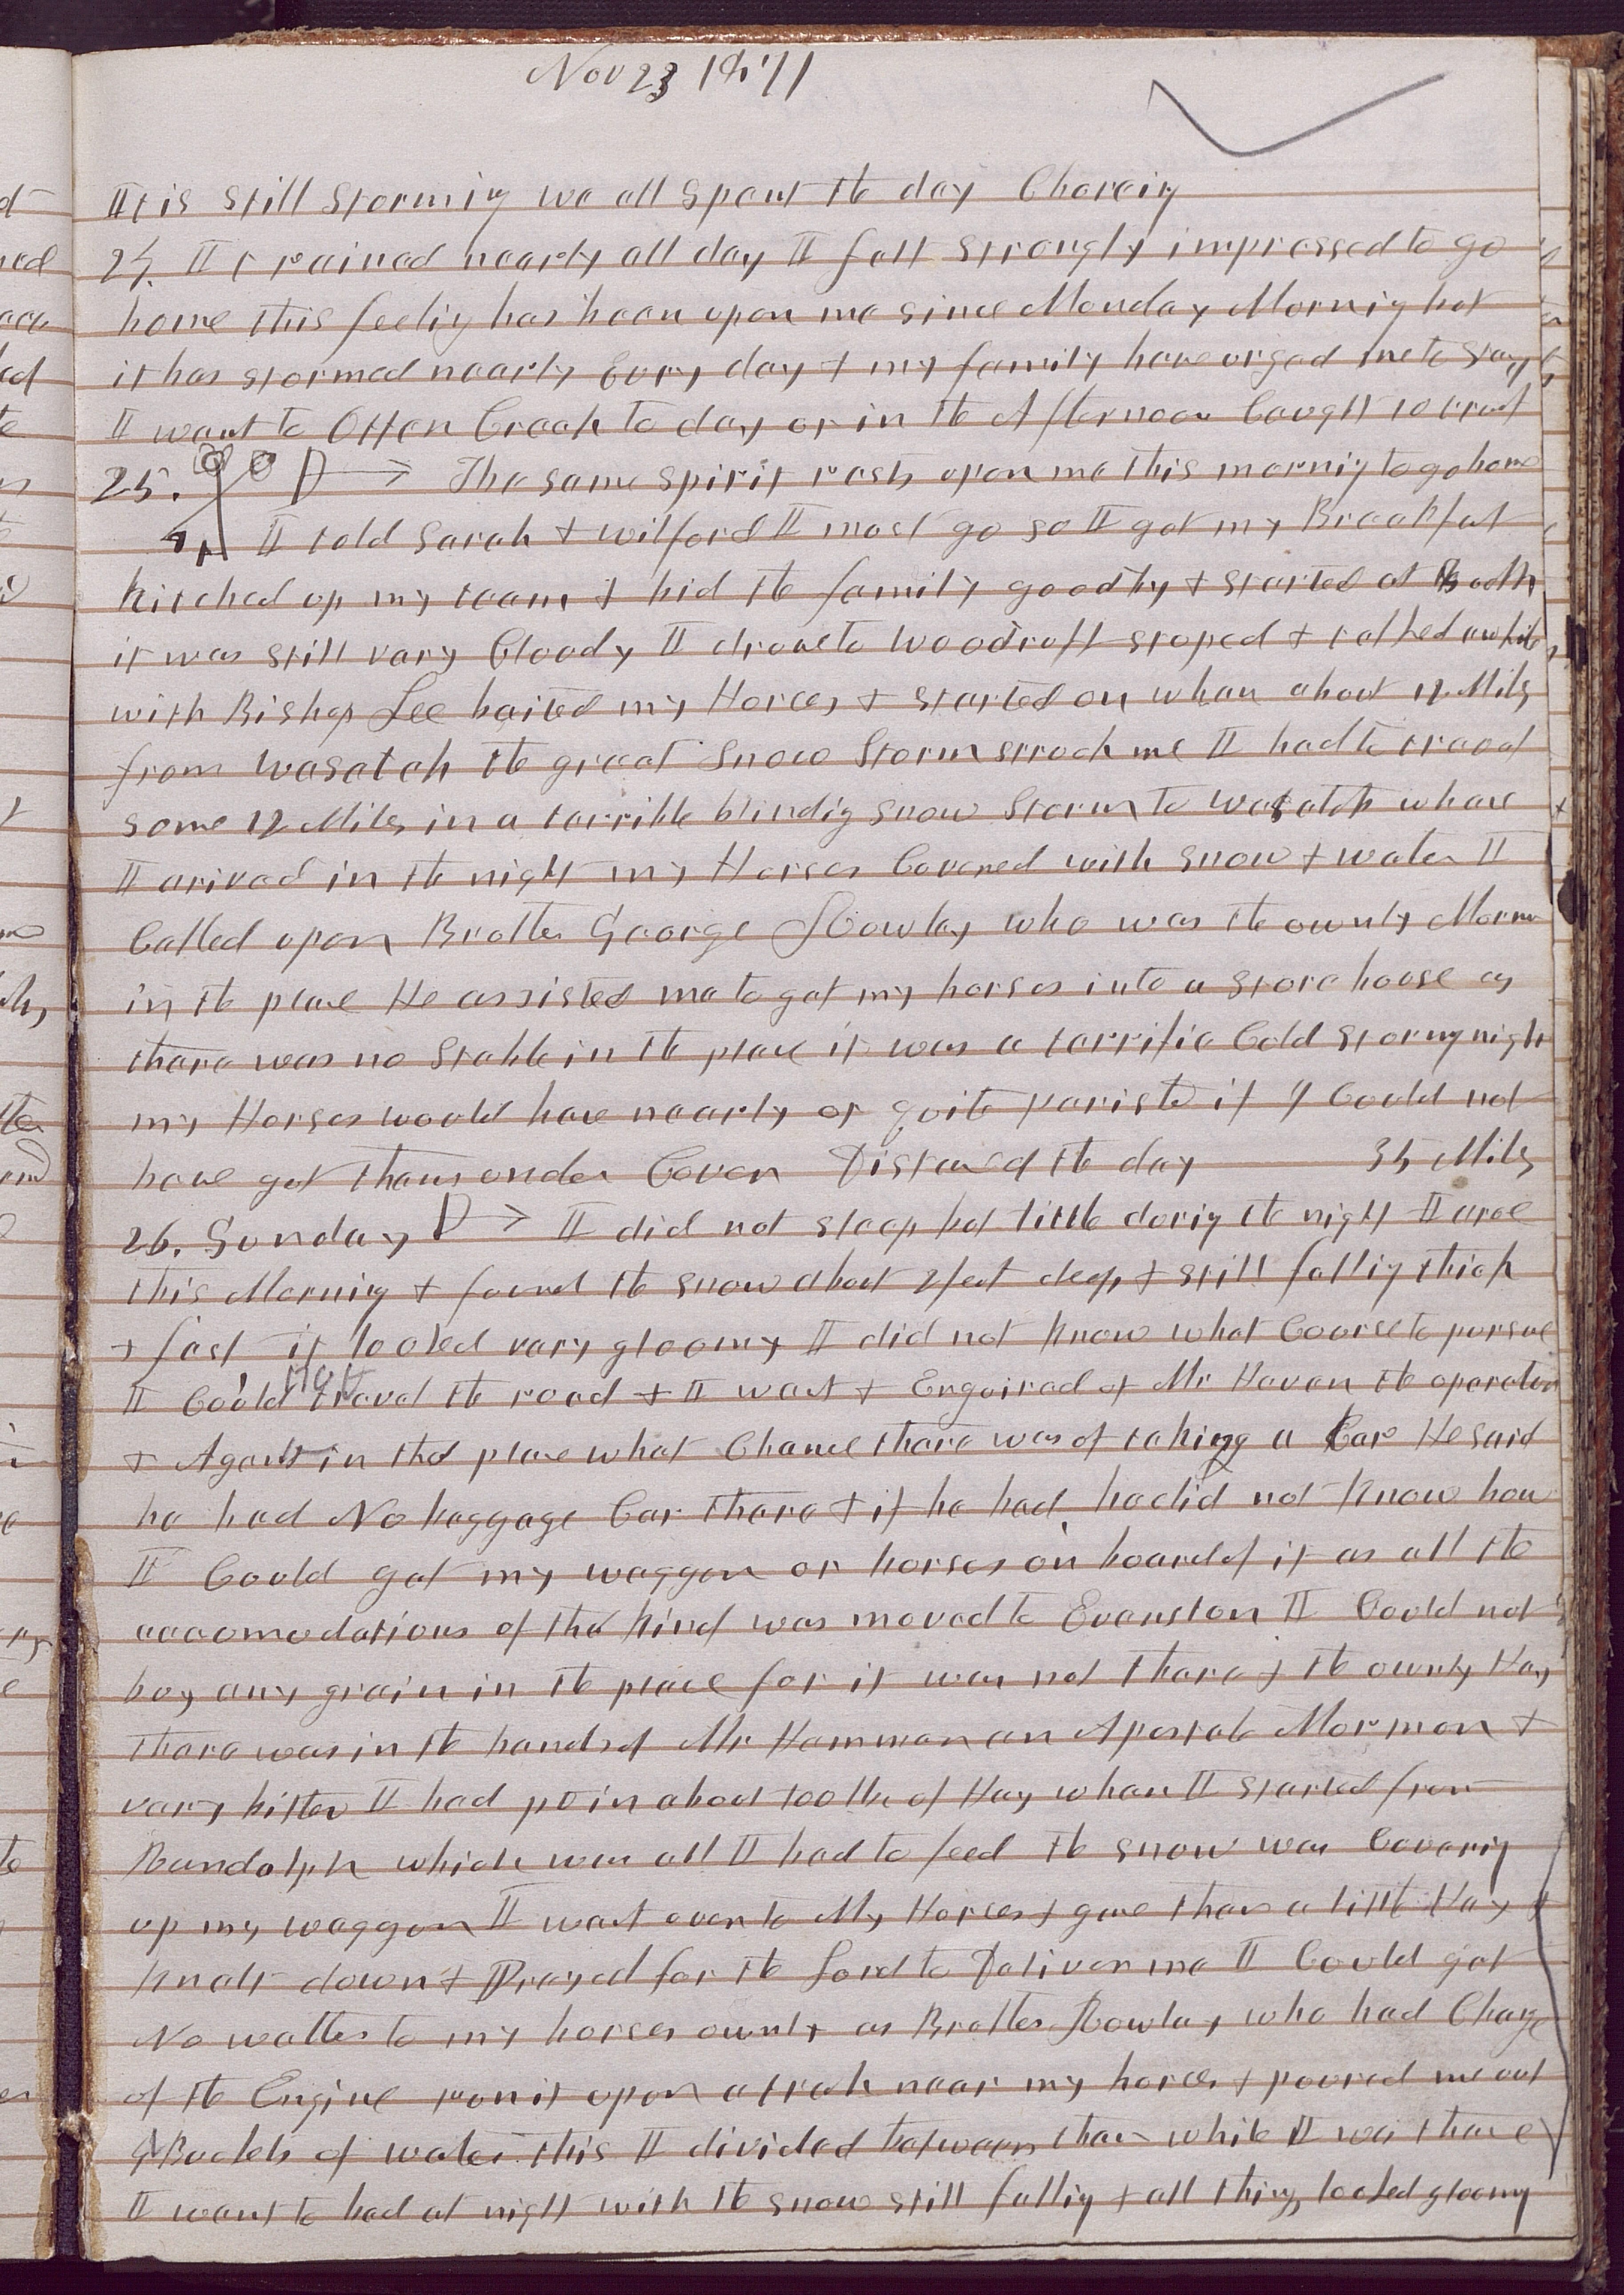 Nov 23 1871
It is still storming we all spent the day Choreing
24. It rained nearly all day I felt strongly impressed to go
home this feeling has been upon me since Monday Morning but
it has stormed nearly Evry day & my family have urged me to stay
I went to Otter Creek to day or in the Afternoon Caught 10 trout
25. The same spirit rests upon me this morning to go home
I told Sarah & wilford I must go so I got my Breakfast
hitched up my team & bid the family good by & started at
it was still vary Cloudy I drove to Woodruff stoped & talked awhile
with Bishop Lee baited my Horses & started on when about 12 Miles
from Wasatch the great Snow Storm struck me I had to travel
some 12 Miles in a terrible blinding snow Storm to Wasatch whare
I arived in the night my Horses Covered with snow & water I
Called upon Brother George Rowley who was the ownly Mormon
in the place He assisted me to get my horses into a store house as
there was no Stable in the place it was a terrific Cold stormy night
my Horses would have nearly or quite perished if I Could not
have got them under Cover Distance of the day 35 Miles
26. Sunday I did not sleep but little during the night I arose
this Morning & found the snow about 2 feet deep & still falling thick
& fast it looked vary gloomy I did not know what Course to pursue
I Could not travel the road & I went & Enquired of Mr Haven the operator
& Agent in that place what Chance there was of taking a Car He said
he had No baggage Car there & if he had he did not know how
I Could get my waggon or horses on board of it as all the
accomodations of that kind was moved to Evanston I Could not
buy any grain in the place for it was not there & the ownly Hay
there was in the hands of Mr Hamman an Apostate Mormon &
vary bitter I had put in about 100 lbs of Hay when I started from
Randolph which was all I had to feed the snow was Covering
up my waggon I went over to My Horses & gave them a little Hay &
knelt down & Prayed for the Lord to Deliver me I Could get
No watter to my horses ownly as Brother Rowley who had Charge
of the Engine run it upon a track near my horses & poured me out
4 Buckets of water this I divided between them while I was there
I went to bed at night with the snow still falling & all things looked gloomy